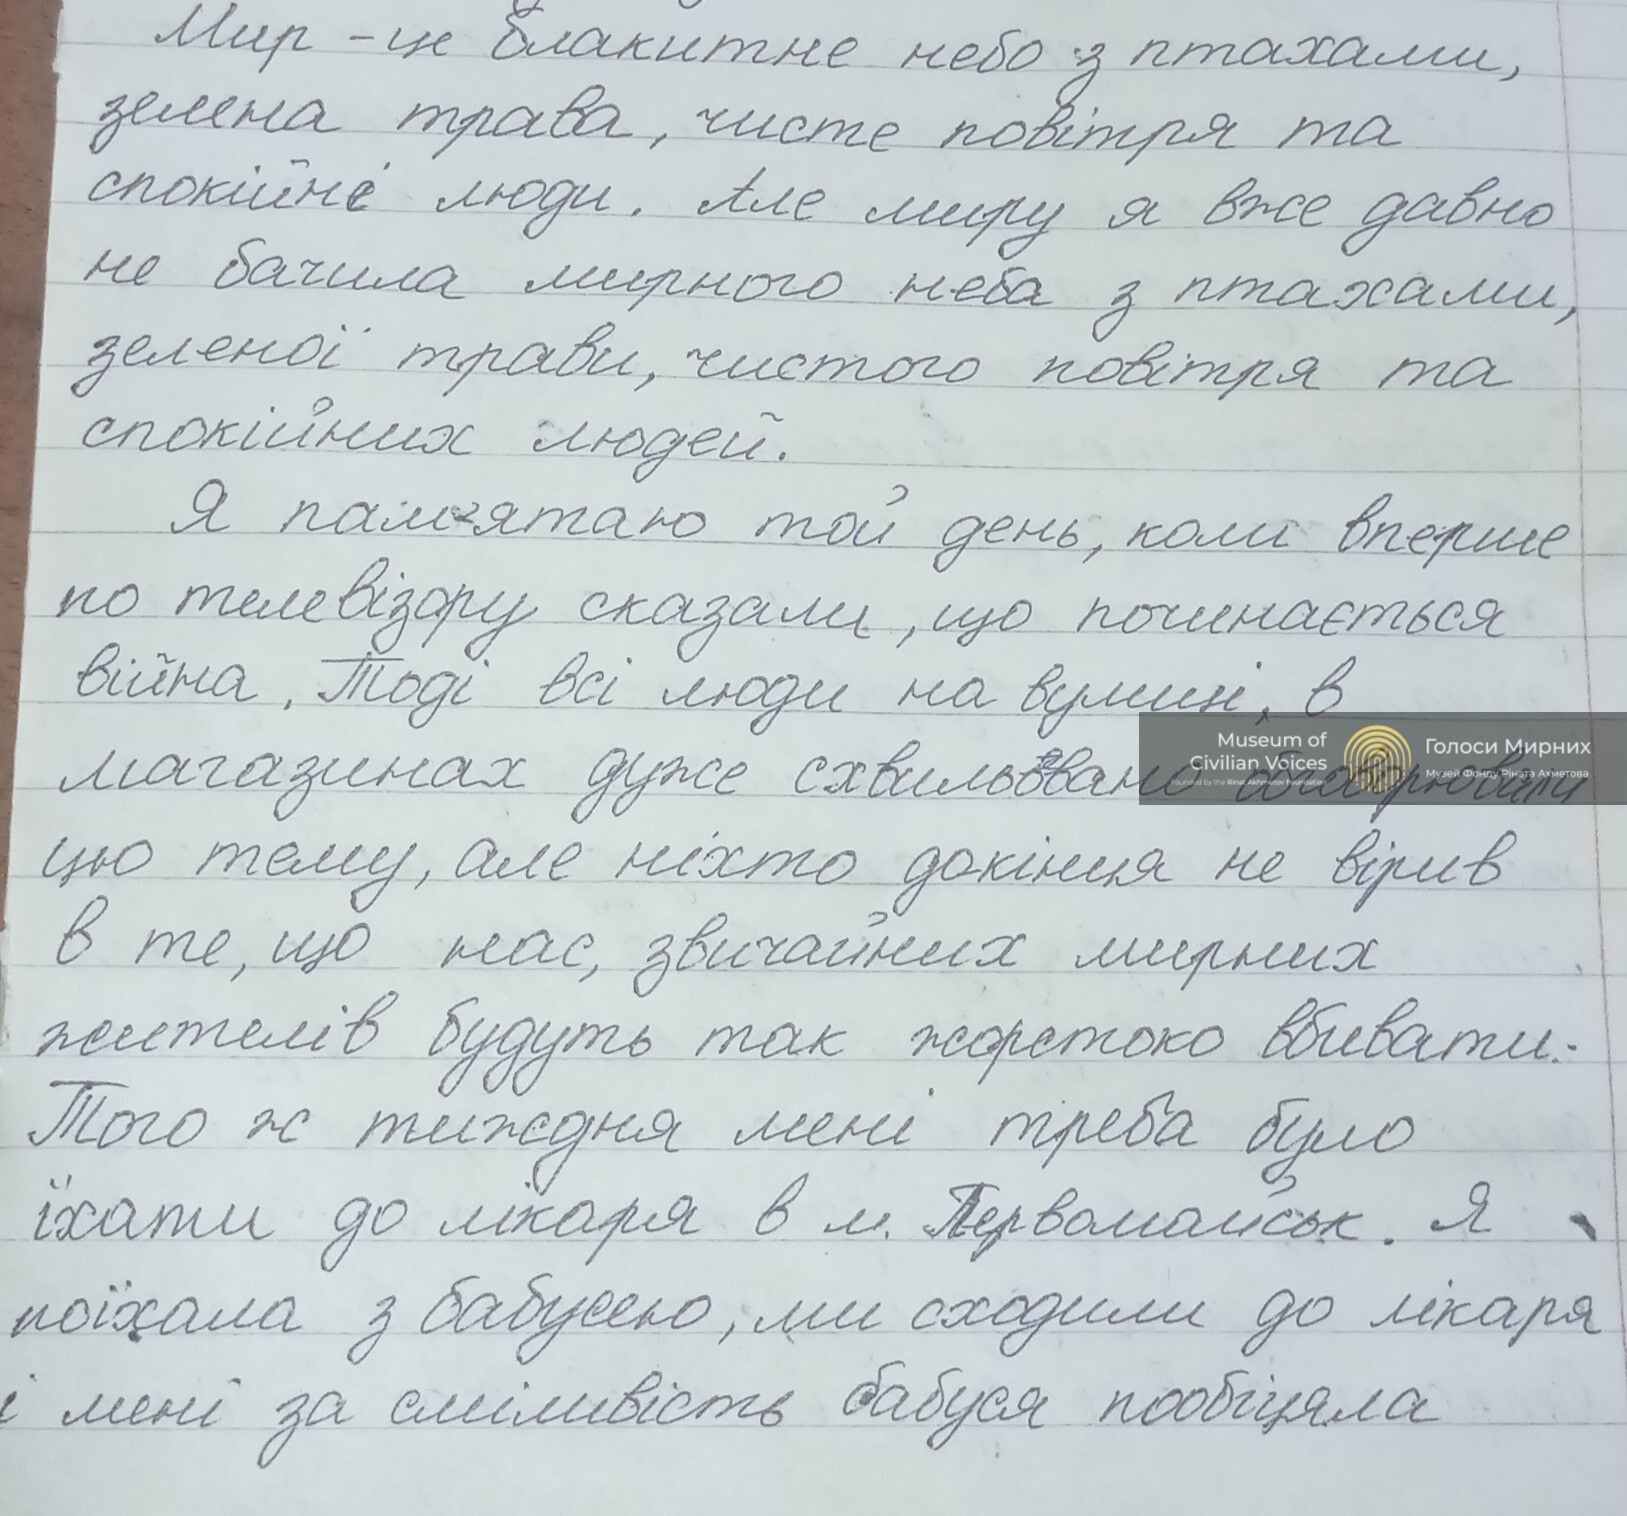 Мир - це блакитне небо з птахами,
зелена трава, чисте повітря та
спокійні люди. Але миру я вже давно
не бачила мирного неба з птахами,
зеленої трави, чистого повітря та
спокійних людей.
Я пам'ятаю той день, коли вперше
по телевізору сказали, що починається
війна. Тоді всі люди на вулиці, в
магазинах дуже схвильовано обговорювали
цю тему, але ніхто докінця не вірив
в те, що нас, звичайних мирних
жителів будуть так жорстоко вбивати.
Того ж тиждня мені треба було
їхати до лікаря в м. Первомайськ. Я
поїхала з бабусею, ми сходили до лікаря
і мені за сміливість бабуся пообіцяла
Museum of
Civilian Voices
Founded by the Rinat Akhmetov Foundation
Голоси Мирних
Музей Фонду Ріната Ахметова